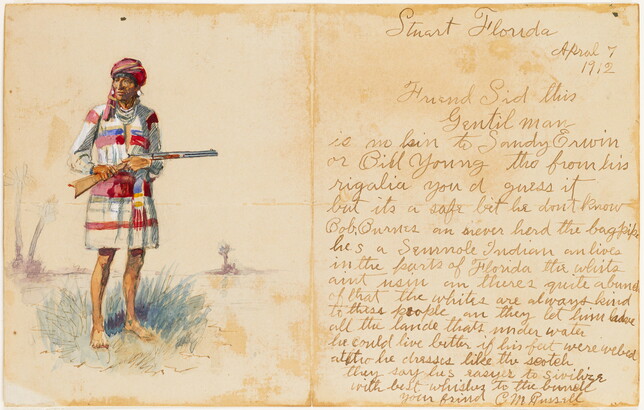 Stuart Florida
April 7
1912
Friend Sid this
Gentil man
is no kin to Sandy Erwin
or Bibl Young tho from his
rigalia you d guess it
but its a safe bit he dont know
Bob Burnes an never herd the bag pipe
hes a Semnole Indian an lives
in the parts of Florida the whits
aint usin an theres quite a bunch
of that the whites are always kind
to these people an they let him have
all the lande thats under water
he could live better if his feet were webed
altho he dresses like the scotch
they say hes easyer to sivilize
with best whishes to the bunch
your frind C M Russell